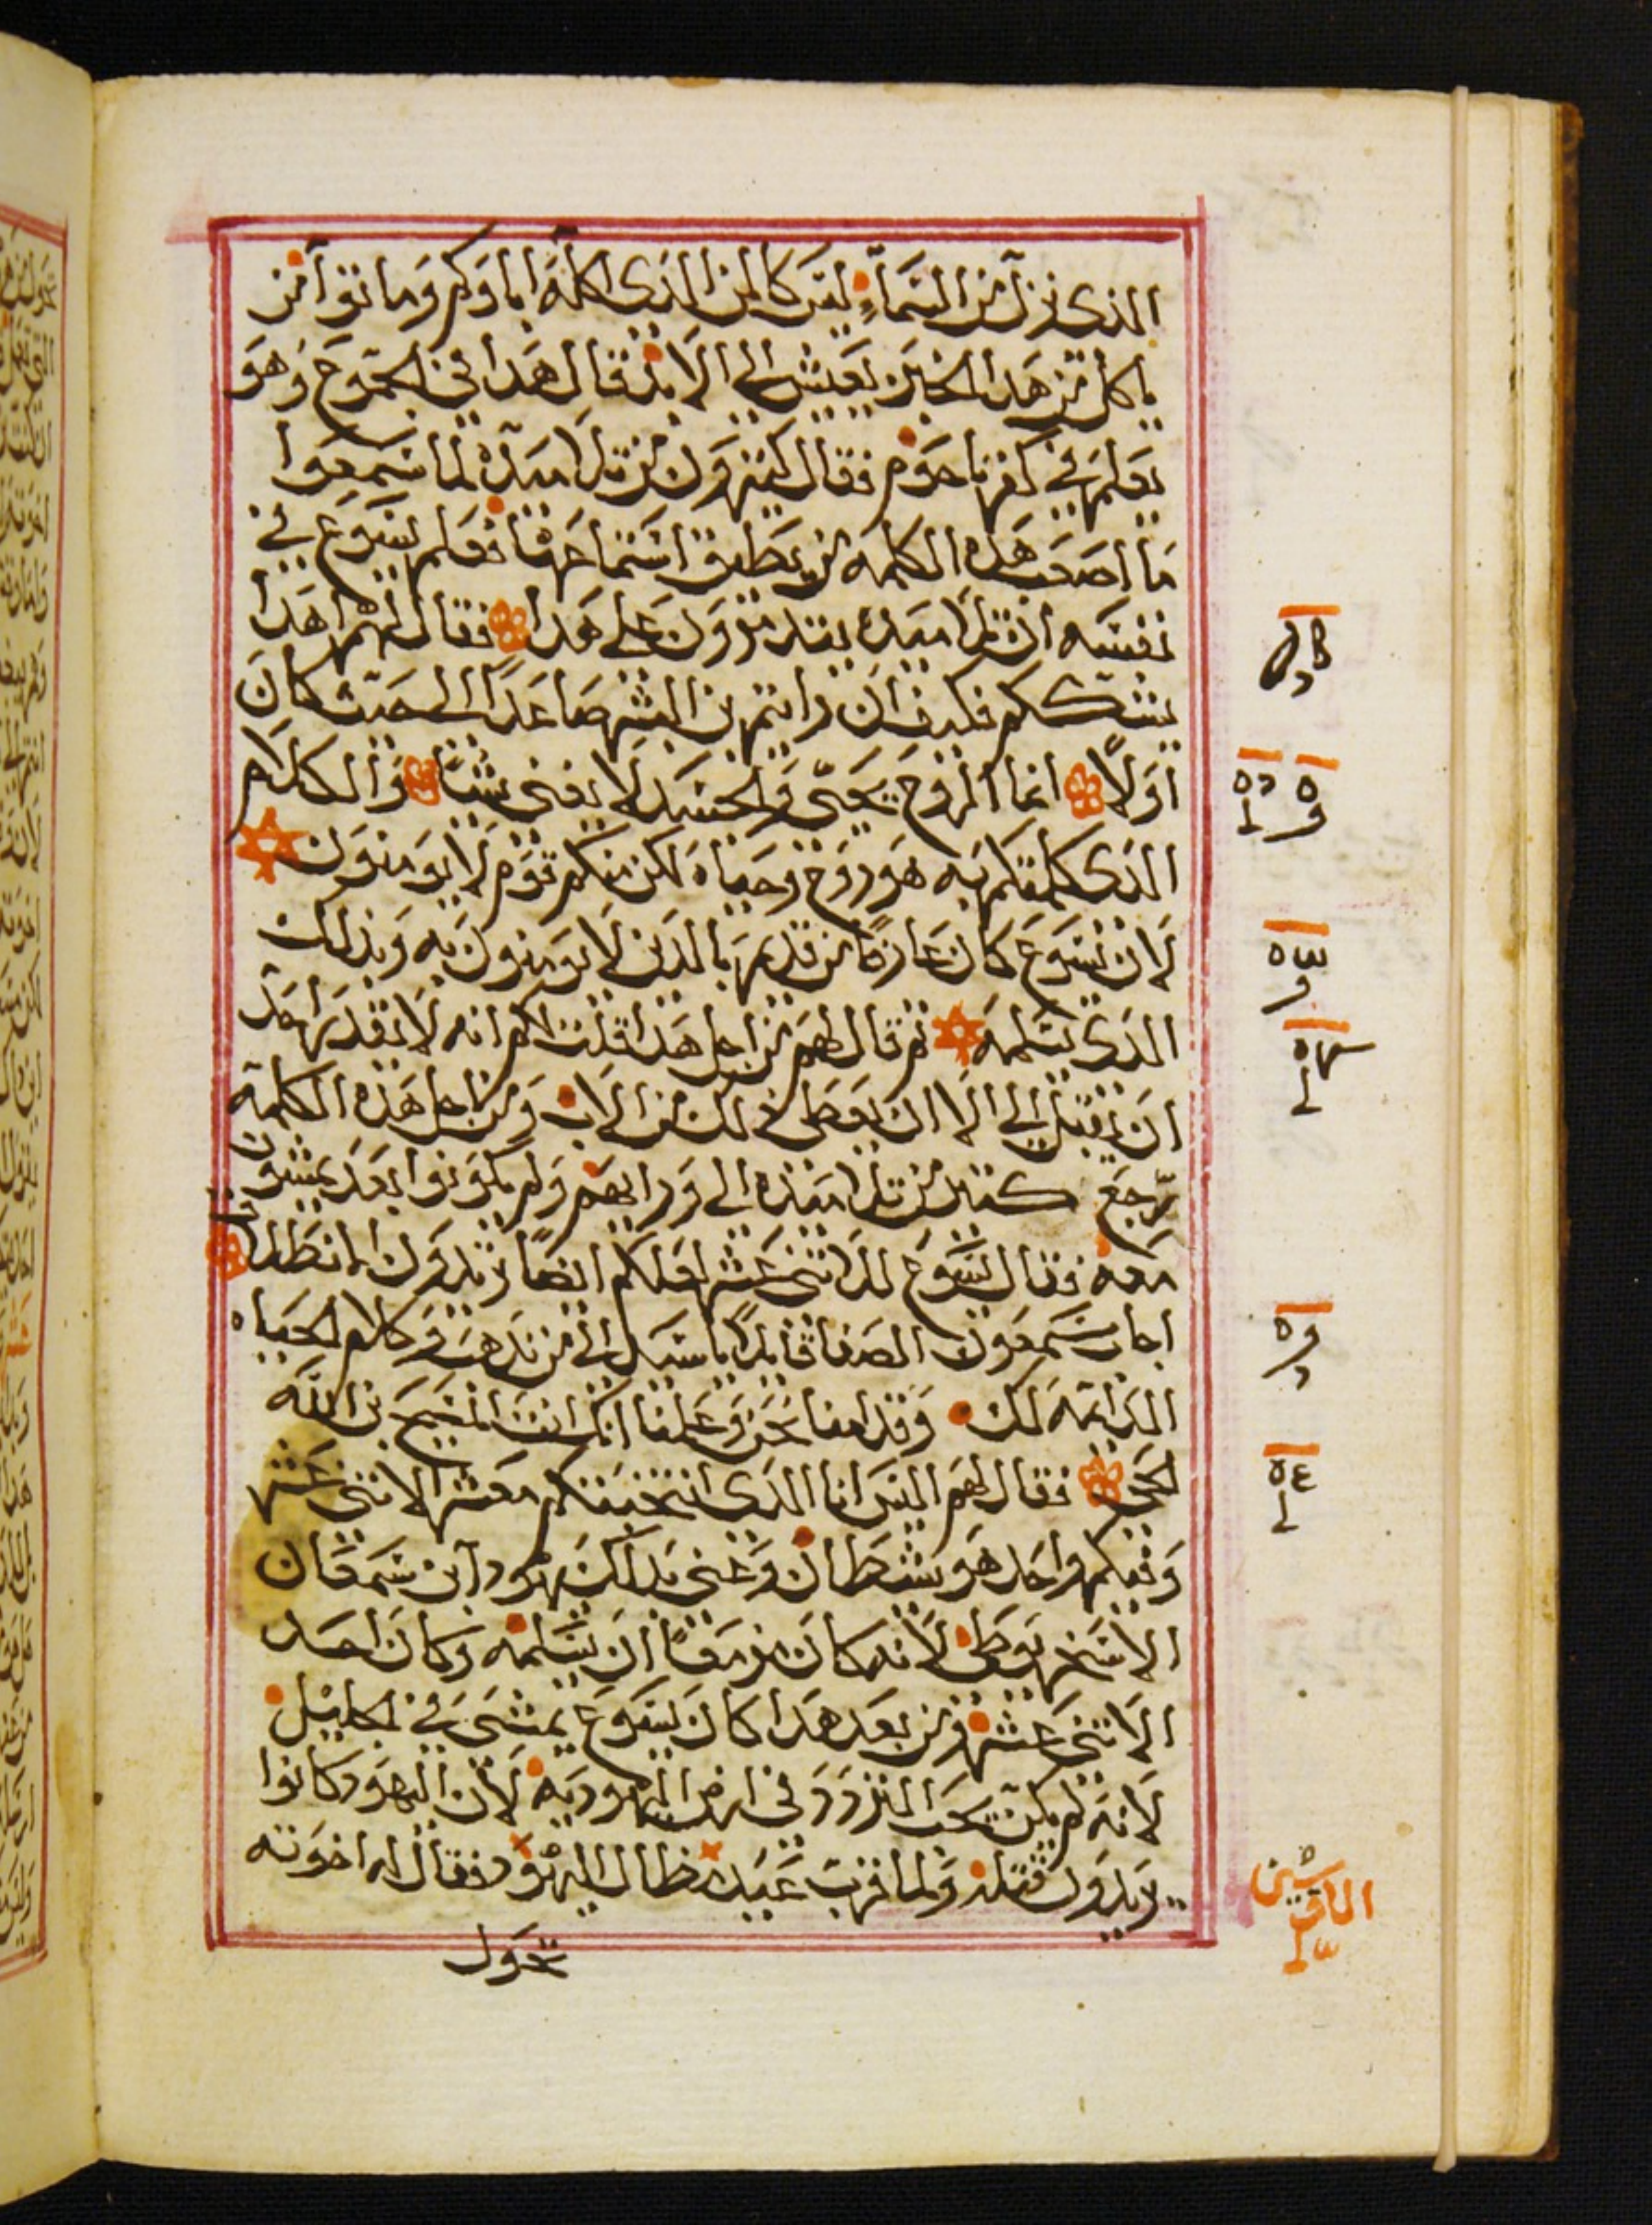 الذى نزل من السمآء ليس كالمن الذى اكله اباوكم وماتوا من
ياكل من هدا الخبز يعيش الى الابد قال هدا فى الجموع وهو
يعلم فى كفرناحوم فقال كثيرون من تلاميده لما سمعوا
ما اصعب هده الكلمه من يطيق استماعها فعلم يسوع فى
نفسه ان تلاميده يتدمرون على هدا فقال لهم اهدا
يشككم فكيف ان رايتم بن البشر صاعدا الى حيث كان
اولًا انما الروح يحيى والجسد لا يغنى شيًا والكلام
الدى كلمتكم به هو روح وحياه لكن منكم قوم لا يومنون
لان يسوع كان عارفًا من قديم بالدين لا يومنون به وبذلك
الدى يسلمه ثم قال لهم من اجل هدا قلت لكم انه لا يقدر احد
ان يقبل الى الا ان يعطى ذلك من الاب ومن اجل هذه الكلمه
رجع كتير من تلاميذه الى ورايهم ولم يكونوا بعد يمشون
معه فقال يسوع للاثنى عشر لعلكم ايضًا تريدون انطلاقا
اجاب سمعون الصفا قايلًا يا سيد الى من ندهب وكلام الحياه
الدايمه لك وقد امنا نحن وعلمنا انك انت المسيح بن الله
الحى فقال لهم اليس انا الدى انتخبتكم معشر الاثنى عشر
وفيكم واحد هو شيطان وعنى بذلك يهودا بن سمعان
الاسخريوطى لانه كان مزمعًا ان يسلمه وكان احد
الاثنى عشر ومن بعد هدا كان يسوع يمشى فى الجليل
لانه لم يكن يحب التردد فى ارض اليهوديه لان اليهود كانوا
يريدون قتله ولما قرب عيد مظال اليهود فقال له اخوته
تحول